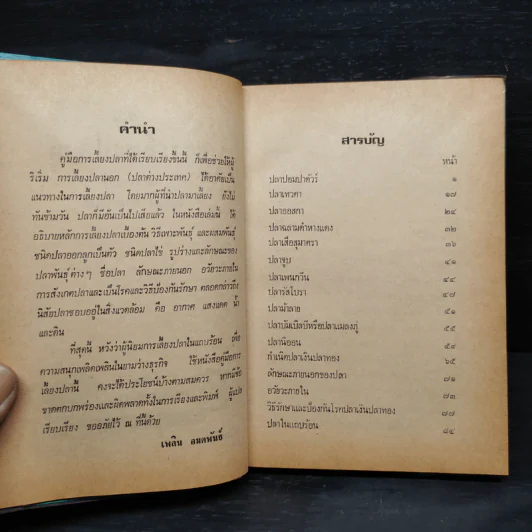 คำนำ
คู่มือการเลี้ยงปลาที่ได้เรียบเรียงขึ้นนี้ ก็เพื่อช่วยให้ผู้
ริเริ่ม การเลี้ยงปลานอก (ปลาต่างประเทศ) ได้อาศัยเป็น
แนวทางในการเลี้ยงปลา ไทยมากผู้ที่นำปลามาเลี้ยง ยังไม่
ทันข้ามวัน ปลาก็มีอันเป็นไปเสียแล้ว ในหนังสือเล่มนี้ ได้
อธิบายหลักการเลี้ยงปลาเบื้องต้น วิธีเพาะพันธุ์ และผสมพันธุ์
ชนิดปลาออกลูกเป็นตัว ชนิดปลาไข่ รูปร่างและลักษณะของ
ปลาพันธุ์ต่างๆ ชื่อปลา ลักษณะภายนอก อวัยวะภายใน
การสังเกตปลาและเป็นโรคและวิธีป้องกันรักษา ตลอดกล่าวถึง
นิสัยปลาชอบอยู่ในสิ่งแวดล้อม คือ อากาศ แสงแดด น้ำ
และดิน
ที่สุดนี้ หวังว่าผู้นิยมการเลี้ยงปลาในแถบร้อน เพื่อ
ความสนุกเพลิดเพลินในยามว่างธุรกิจ ใช้หนังสือคู่มือการ
เลี้ยงปลานี้ คงจะได้ประโยชน์บ้างตามสมควร หากมีข้อ
ขาดตกบกพร่องและผิดพลาดทั้งในการเรียงและพิมพ์ ผู้แปล
เรียบเรียง ขออภัยไว้ ณ ที่นี้ด้วย
เพลิน
สารบัญ
หน้า
ปลาปอมปาดัวร์ ๑
ปลาเทวดา ๑๗
ปลาออสกา ๒๔
ปลาฉลามดำหางแดง ๓๒
ปลาเสือสุมาตรา ๓๖
ปลาจูบ ๔๑
ปลาเพนกวิน ๔๔
ปลารัสโบรา ๔๗
ปลาม้าลาย ๕๑
ปลาบัมเบิลบีหรือปลาแมลงภู่ ๕๕
ปลานีออน ๕๙
กำเนิดปลาเงินปลาทอง ๖๕
ลักษณะภายนอกของปลา ๗๑
อวัยวะภายใน ๗๓
วิธีรักษาและป้องกันโรคปลาเงินปลาทอง ๗๗
ปลาในแถบร้อน ๘๔